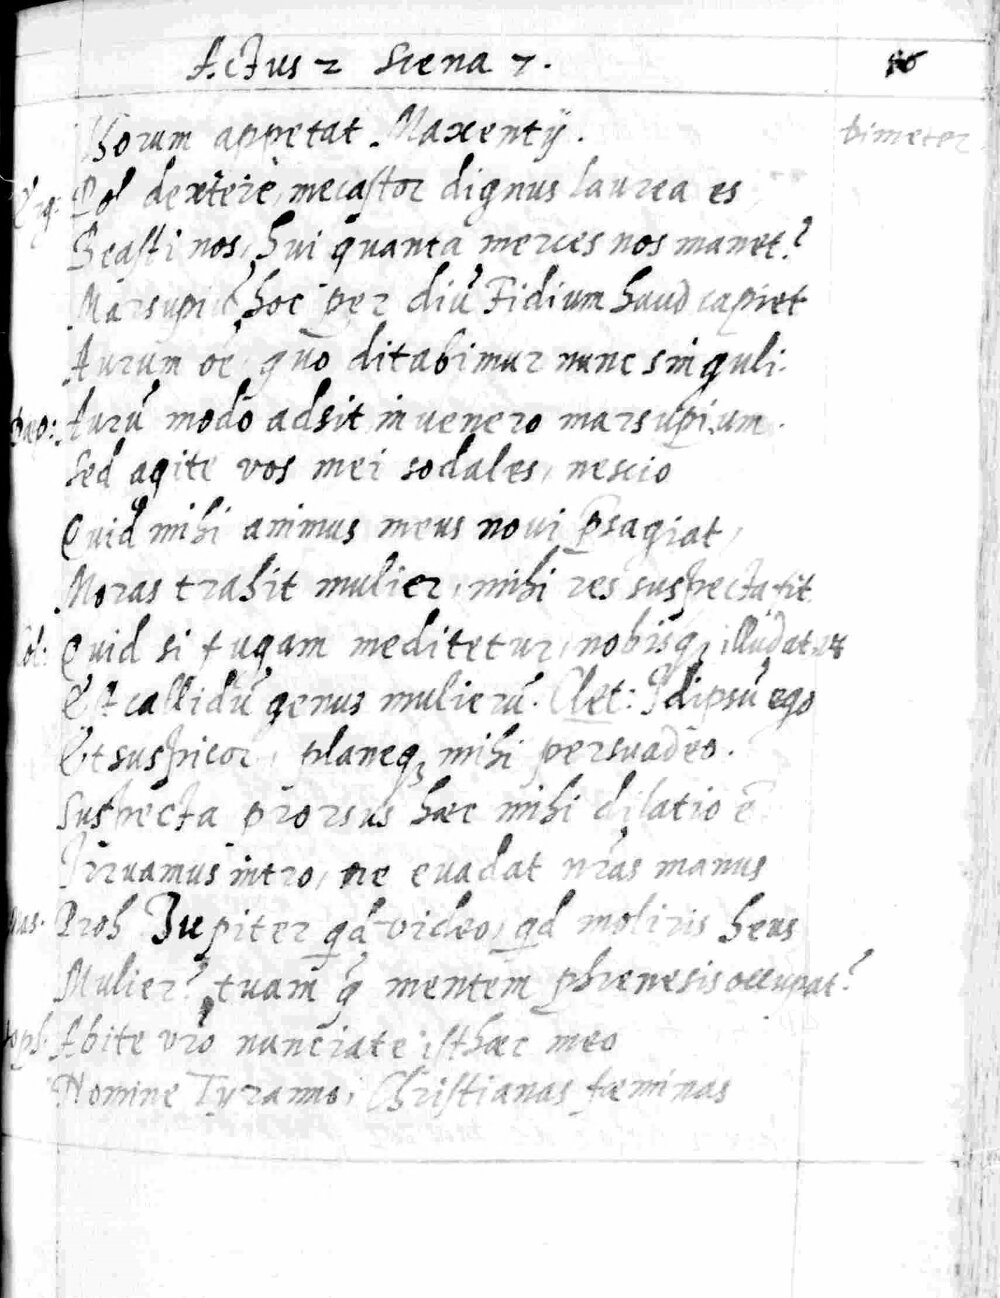 Actus 2 Scena 7.
Thorum appetat. Maxentij.
dimeter
Pol dexterè, mecastor dignus laurea es
Beasti nos, hui quanta merces nos manet?
Marsupiũ hoc per diũ Fidium haud capiet
Aurum oẽ, quo ditabimur nunc singuli.
Aurũ modo adsit invenero marsupium.
Sed agite vos mei sodales, nescio
Quid mihi animus meus novi p̃sagiat,
Moras trahit mulier, mihi res suspecta fit
Col: Quid si fugam meditetur, nobisq; illudat
Et callidũ genus mulierũ. Clet: Idipsũ ego
Et suspicor, planeq; mihi persuadeo.
Suspecta prorsus hæc mihi dilatio ẽ
Irruamus intro, ne evadat nr̃as manus
Proh Jupiter qd video, qd moliris heus
Mulier? tuam q̃ mentem phrenesis occupat?
Soph: Abite vr̃o nunciate isthæc meo
Nomine Tyranno, Christianas fæminas